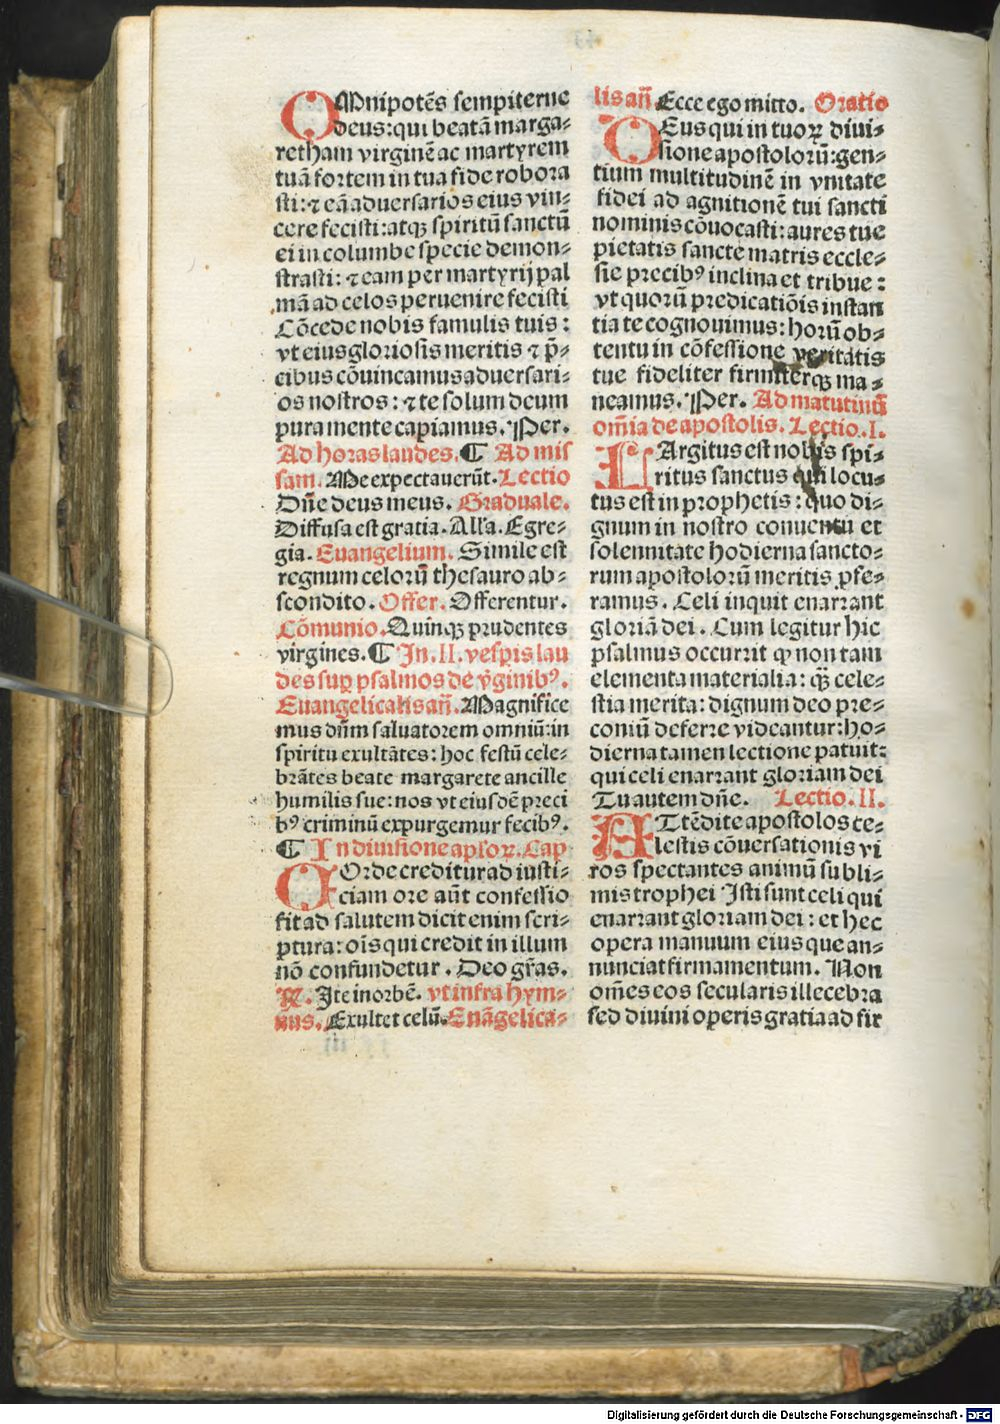 OMnipotēs sempiterne
deus: qui beatā marga-
retham virginē ac martyrem
tuā fortem in tua fide robora
sti: ⁊ eā aduersarios eius vin-
cere fecisti: atqꝫ spiritū sanctū
ei in columbe specie demon-
strasti: ⁊ eam per martyrij pal
mā ad celos peruenire fecisti
Cōcede nobis famulis tuis:
vt eius gloriosis meritis ⁊ p̄-
cibus cōuincamus aduersari-
os nostros: ⁊ te solum deum
pura mente capiamus. Per.
Ad horas laudes. ¶ Ad mis
sam. Me expectauerūt. Lectio
Dn̄e deus meus. Graduale.
Diffusa est gratia. Alla. Egre-
gia. Euangelium. Simile est
regnum celorū thesauro ab-
scondito. Offer. Offerentur.
Cōmunio. Quinqꝫ prudentes
virgines. ¶ In. II. vespis lau
des suꝑ psalmos de v̄ginibꝰ.
Euangelicalis an̄. Magnifice
mus dn̄m saluatorem omniū: in
spiritu exultātes: hoc festū cele-
brātes beate margarete ancille
humilis sue: nos vt eiusdē preci
bꝰ criminū expurgemur fecibꝰ.
¶ In diuisione aplorꝫ. Cap
COrde creditur ad iusti-
ciam ore aūt confessio
fit ad salutem dicit enim scri-
ptura: oīs qui credit in illum
nō confundetur. Deo gr̄as.
℞. Ite in orbē. vt infra hym-
nus. Exultet celū. Euāgelica-
lis an̄. Ecce ego mitto. Oratio
DEus qui in tuoꝝ diui-
sione apostolorū: gen-
tium multitudinē in vnitate
fidei ad agnitionē tui sancti
nominis cōuocasti: aures tue
pietatis sancte matris eccle-
sie precibꝰ inclina et tribue:
vt quorū predicatiōis instan
tia te cognouimus: horū ob-
tentu in cōfessione veritatis
tue fideliter firmiterqꝫ ma-
neamus. Per. Ad matutinū
om̄ia de apostolis. Lectio. I.
LArgitus est nobis spi-
ritus sanctus qui locu-
tus est in prophetis: quo di-
gnum in nostro conuentu et
solennitate hodierna sancto-
rum apostolorū meritis ꝓfe-
ramus. Celi inquit enarrant
gloriā dei. Cum legitur hic
psalmus occurrit ꝙ non tam
elementa materialia: qꝫ cele-
stia merita: dignum deo pre-
coniū deferre videantur: ho-
dierna tamen lectione patuit:
qui celi enarrant gloriam dei
Tu autem dn̄e. Lectio. II.
ATtēdite apostolos ce-
lestis cōuersationis vi
ros spectantes animū subli-
mis trophei Isti sunt celi qui
enarrant gloriam dei: et hec
opera manuum eius que an-
nunciat firmamentum. Non
om̄es eos secularis illecebra
sed diuini operis gratia ad fir
Digitalisierung gefördert durch die Deutsche Forschungsgemeinschaft - DFG